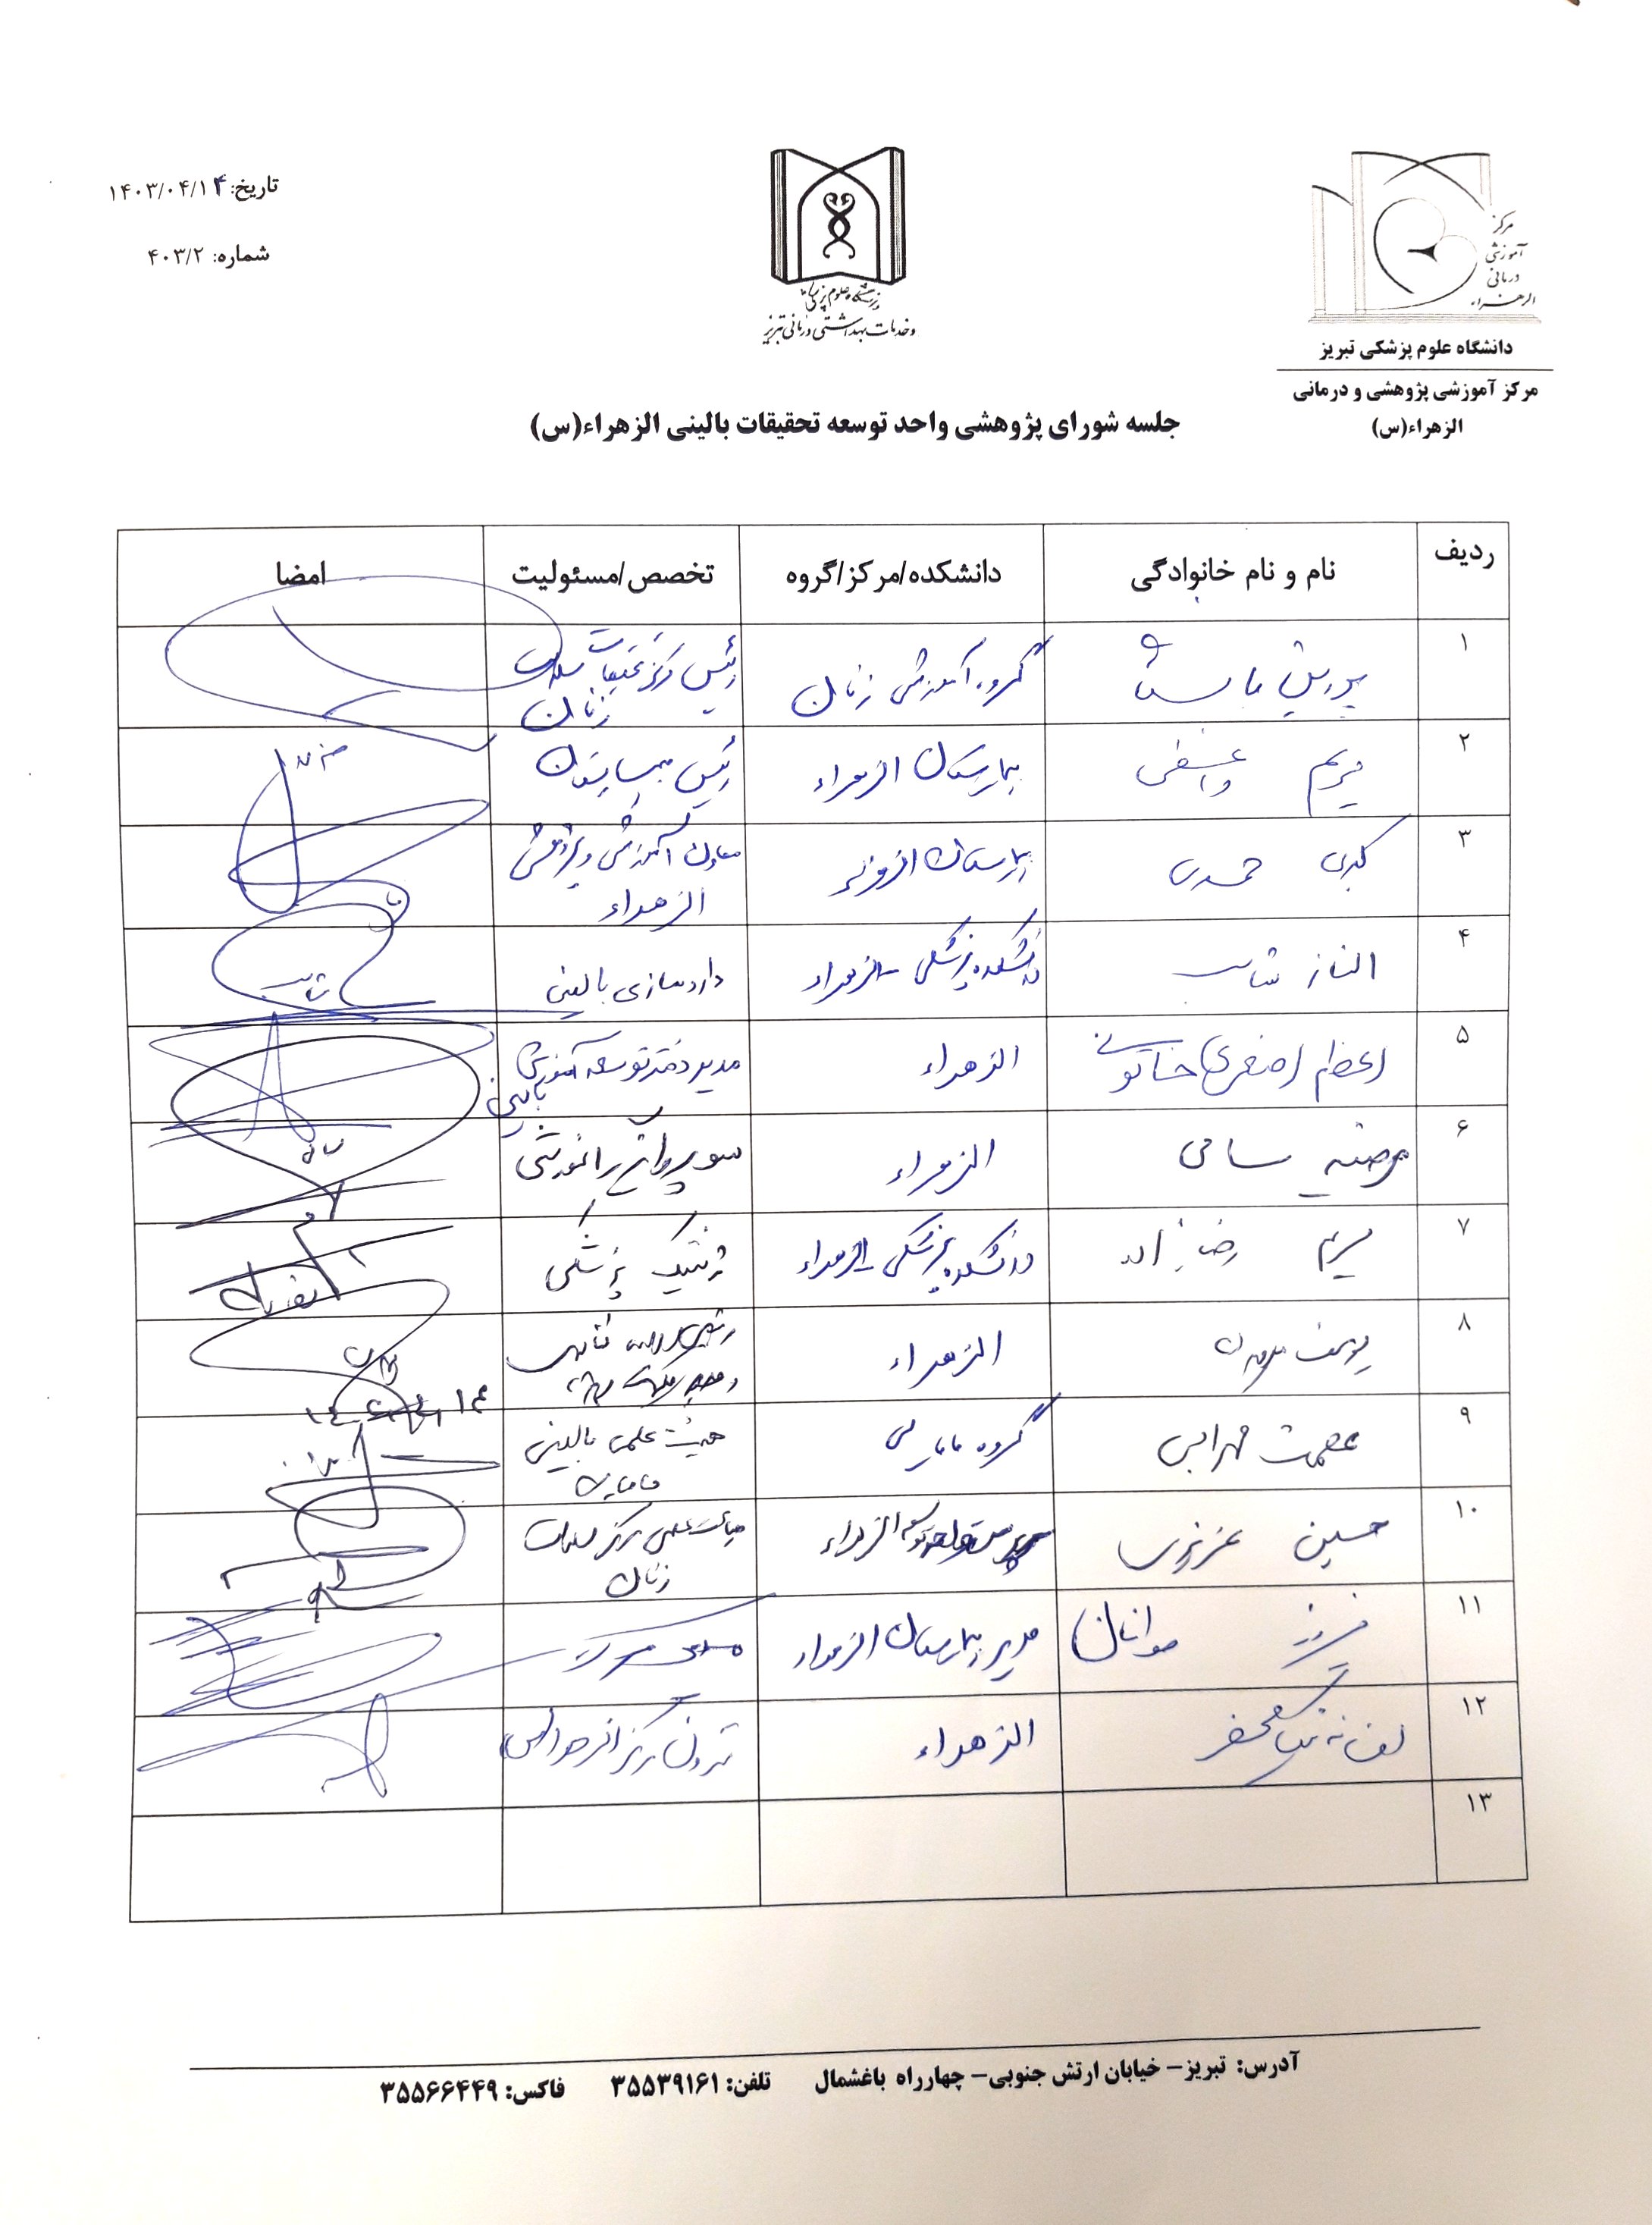 تاریخ: ۱۴۰۳/۰۴/۱۴
شماره: ۴۰۳/۲
مرکز
آموزشی
درمانی
الزهراء
وخدمات بهداشتی درمانی تبریز
دانشگاه علوم پزشکی تبریز
مرکز آموزشی پژوهشی و درمانی
الزهراء(س)
جلسه شورای پژوهشی واحد توسعه تحقیقات بالینی الزهراء(س)
ردیف نام و نام خانوادگی دانشکده/مرکز/گروه تخصص/مسئولیت امضا
۱ گروه آموزشی زنان رئیس مرکز تحقیقات سلامت
زنان
۲ مریم واعظی بیمارستان الزهراء رئیس بیمارستان
۳ کبری حمدی بیمارستان الزهراء معاون آموزشی و پژوهشی
الزهراء
۴ الناز شاسب دانشکده پزشکی الزهراء داروسازی بالینی
۵ اعظم اصغری خاتونی الزهراء مدیر دفتر توسعه آموزش
بالینی
۶ مرضیه سامی الزهراء سوپروایزر آموزشی
۷ مریم رضازاده دانشکده پزشکی الزهراء ژنتیک پزشکی
۸ یوسف الزهراء
۹ عصمت مهرابی گروه مامایی هیئت علمی بالینی
مامایی
۱۰ حسین عزیزی الزهراء هیات علمی مرکز سلامت
زنان
۱۱ مدیر بیمارستان الزهراء
۱۲ الزهراء
۱۳
آدرس: تبریز– خیابان ارتش جنوبی– چهارراه باغشمال تلفن: ۳۵۵۳۹۱۶۱ فاکس: ۳۵۵۶۶۴۴۹